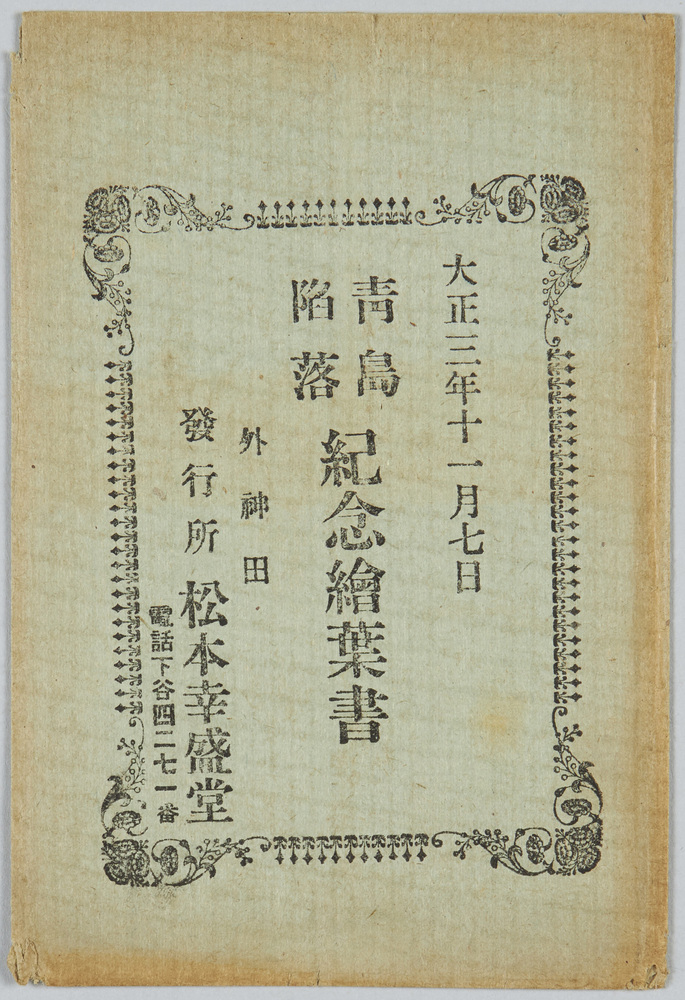 大正三年十一月七日
靑島
陷落
紀念繪葉書
外神田
發行所 松本幸盛堂
電話下谷四二七一番